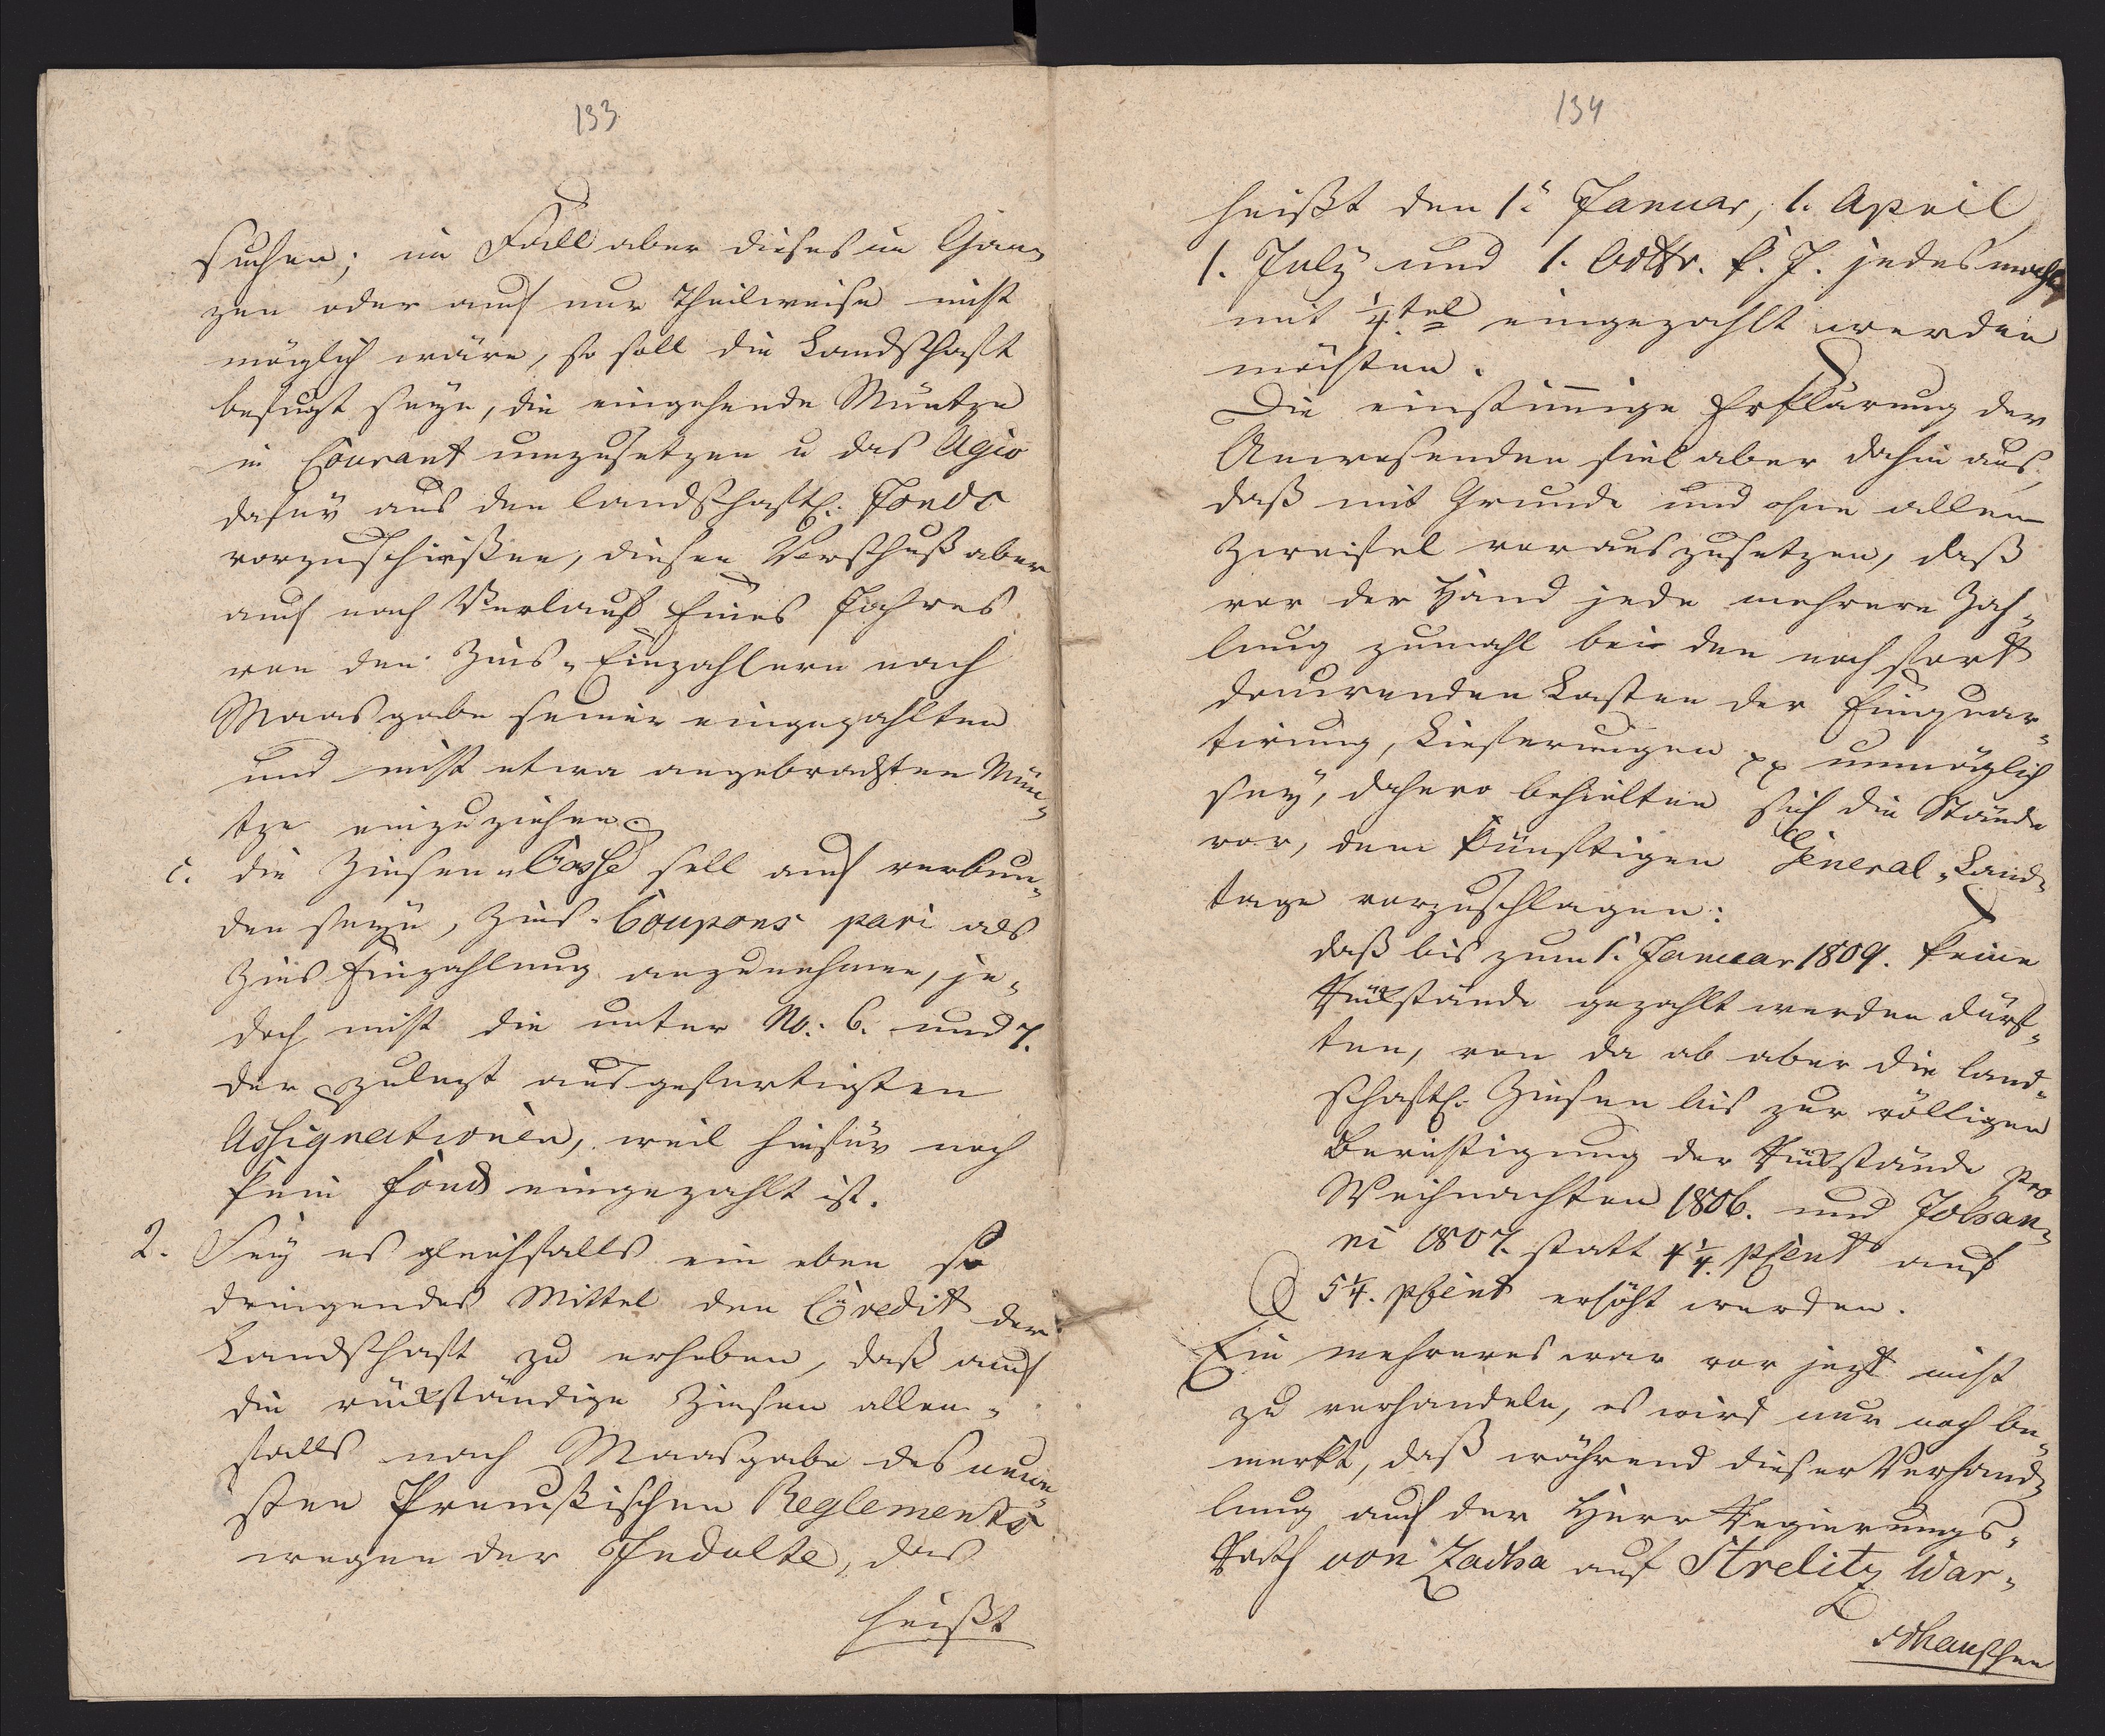 133
suchen; im Fall aber dieses im Gan„
zen oder auch nur Theilweise nicht
möglich wäre, so soll die Landschaft
befugt seyn, die eingehende Müntze
in Courant umzusetzen u das Agio
dafür aus den landschaftl: Fonds
vorzuschießen, diesen Vorschuß aber
auch nach Verlauf Eines Jahres
von den Zins„Einzahlern nach
Maasgabe seiner eingezahlten
und nicht etwa angebrachten Mün„
tze einzuziehen.
c. die Zinsen„Casse soll auch verbun„
den seyn, Zins„Coupons pari als
Zins Einzahlung anzunehmen, je„
doch nicht die unter No: 6. und 7.
der zulezt ausgefertigten
Assignationen, weil hiefür noch
kein Fond eingezahlt ist.
2. Sey es gleichfalls ein eben so
dringendes Mittel den Credit der
Landschaft zu erheben, daß auch
die rückständige Zinsen allen„
falls nach Maasgabe des neue„
sten Preussischen Reglements
wegen der Indulte, das
heißt
134
heißt den 1t Januar, 1. April
1. July und 1. Octbr. k. J. jedesmahl
mit 1/4tel eingezahlt werden
möchten.
Die einstimige Erklärung der
Anwesenden fiel aber dahin aus,
daß mit Grunde und ohne allen
Zweifel vorauszusetzen, daß
vor der Hand jede mehrere Zah„
lung zumahl bei den noch fort
daurenden Lasten der Einquar„
tirung, Lieferungen pp unmöglich
sey, dahero behielten sich die Stände
vor, dem künftigen General„Land„
tage vorzuschlagen:
daß bis zum 1t Januar 1809. keine
Rükstände gezahlt werden dürf„
ten, von da ab aber die land„
schaftl: Zinsen bis zur völligen
Berichtigung der Rükstände pro
Weihnachten 1806. und Johan„
ni 1807. statt 4 1/4. pCent auf
5 1/4. pCent erhöht werden.
Ein mehreres war vor jezt nicht
zu verhandeln, es wird nur noch be„
merkt, daß während dieser Verhand„
lung auch der Herr Regierungs„
Rath von Zacha auf Strelitz War„
schauschen